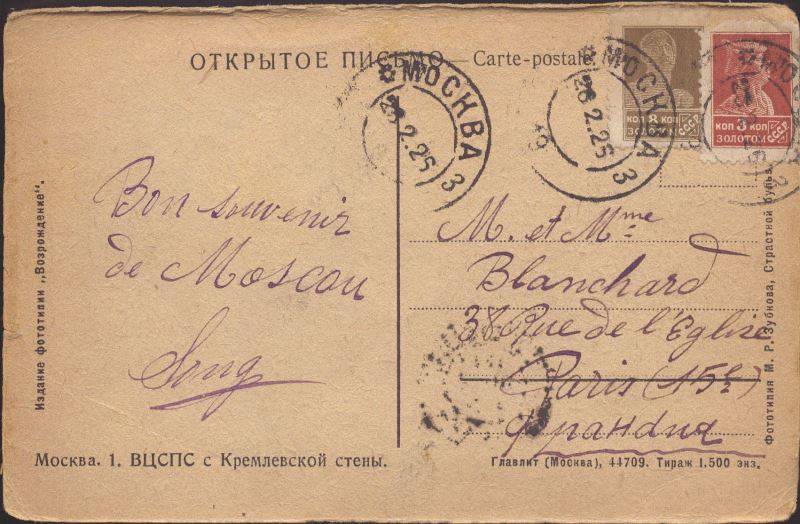 ОТКРЫТОЕ ПИСЬМО — Carte-postale.
МОСКВА 3
26.2.25
МОСКВА 3
26.2.25
КОП 8 КОП
ЗОЛОТОМ СССР
КОП 3 КОП
ЗОЛОТОМ СССР
Издание фототипии „Возрождение".
Bon souvenir
de Moscou
M. et Mme
Blanchard
38 Rue de l'Eglise
Paris (15e)
Франция
Фототипия М. Р. Зубкова, Страстной бульв.
Москва. 1. ВЦСПС с Кремлевской стены.
Главлит (Москва), 44709. Тираж 1.500 экз.